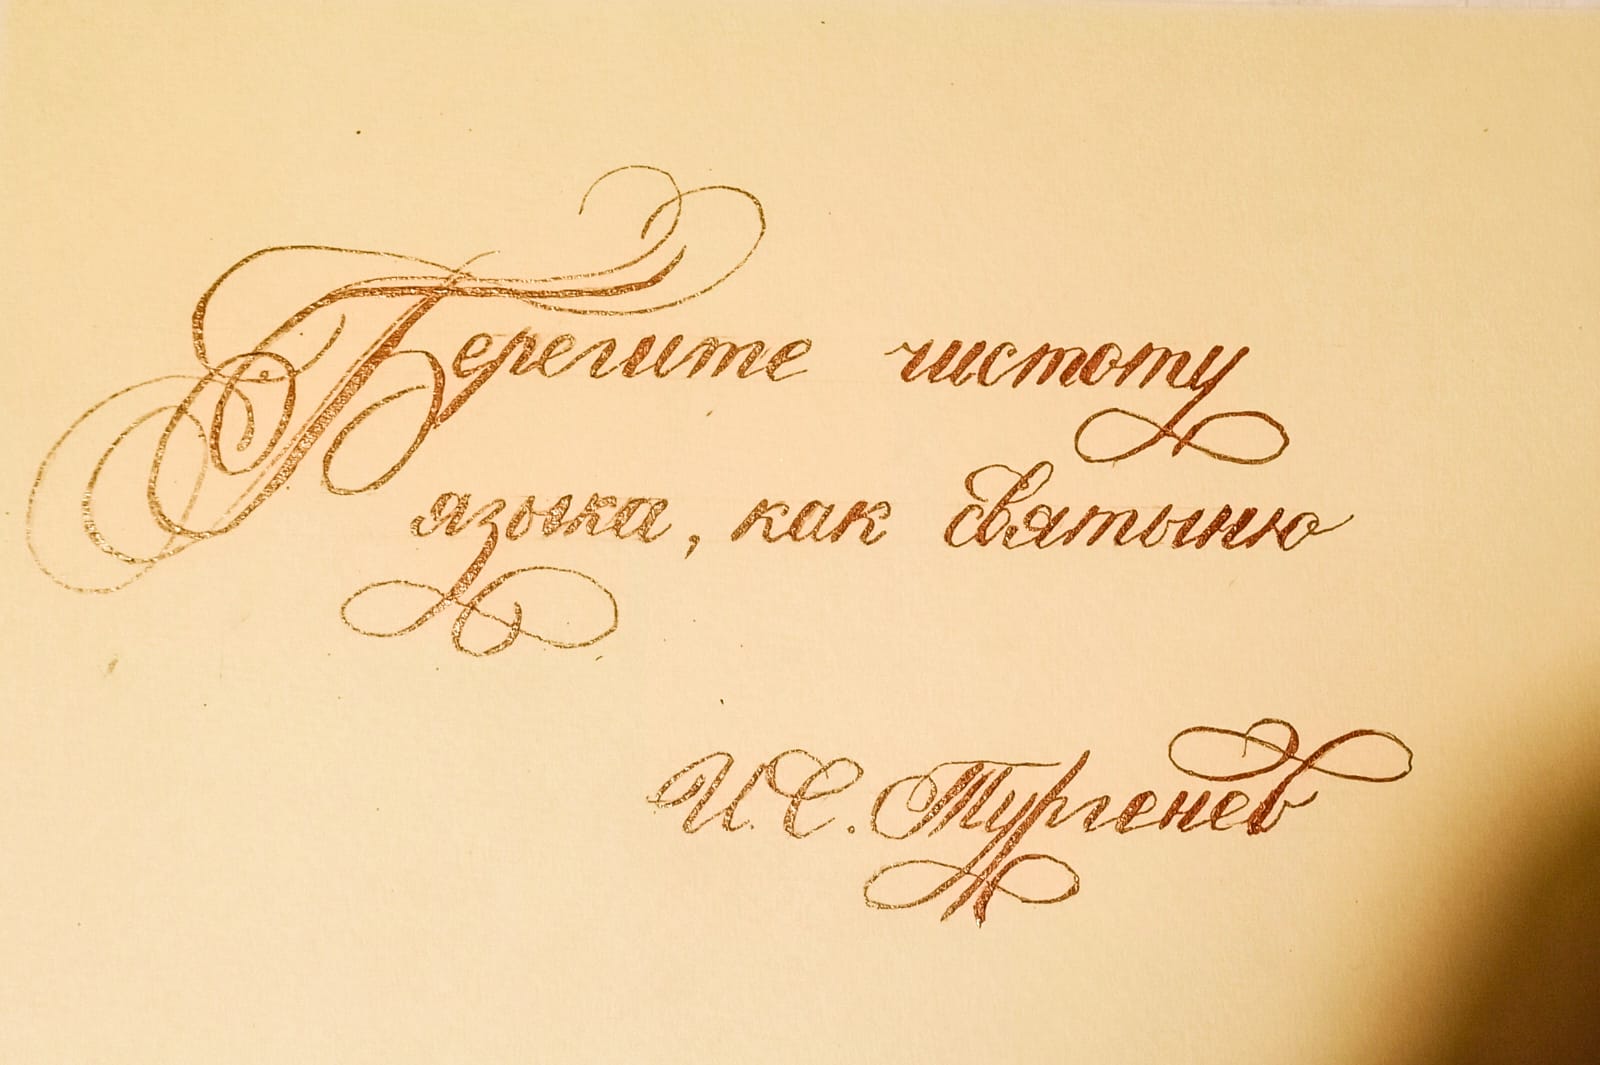 Берегите чистоту
языка, как святыню
И.С. Тургенев